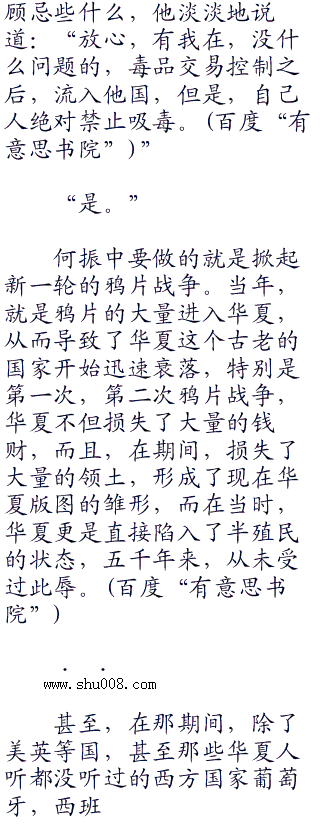 顾忌些什么，他淡淡地说
道：“放心，有我在，没什
么问题的，毒品交易控制之
后，流入他国，但是，自己
人绝对禁止吸毒。(百度“有
意思书院”)”
“是。”
何振中要做的就是掀起
新一轮的鸦片战争。当年，
就是鸦片的大量进入华夏，
从而导致了华夏这个古老的
国家开始迅速衰落，特别是
第一次，第二次鸦片战争，
华夏不但损失了大量的钱
财，而且，在期间，损失了
大量的领土，形成了现在华
夏版图的雏形，而在当时，
华夏更是直接陷入了半殖民
的状态，五千年来，从未受
过此辱。(百度“有意思书
院”)
．．
www.shu008.com
甚至，在那期间，除了
美英等国，甚至那些华夏人
听都没听过的西方国家葡萄
牙，西班